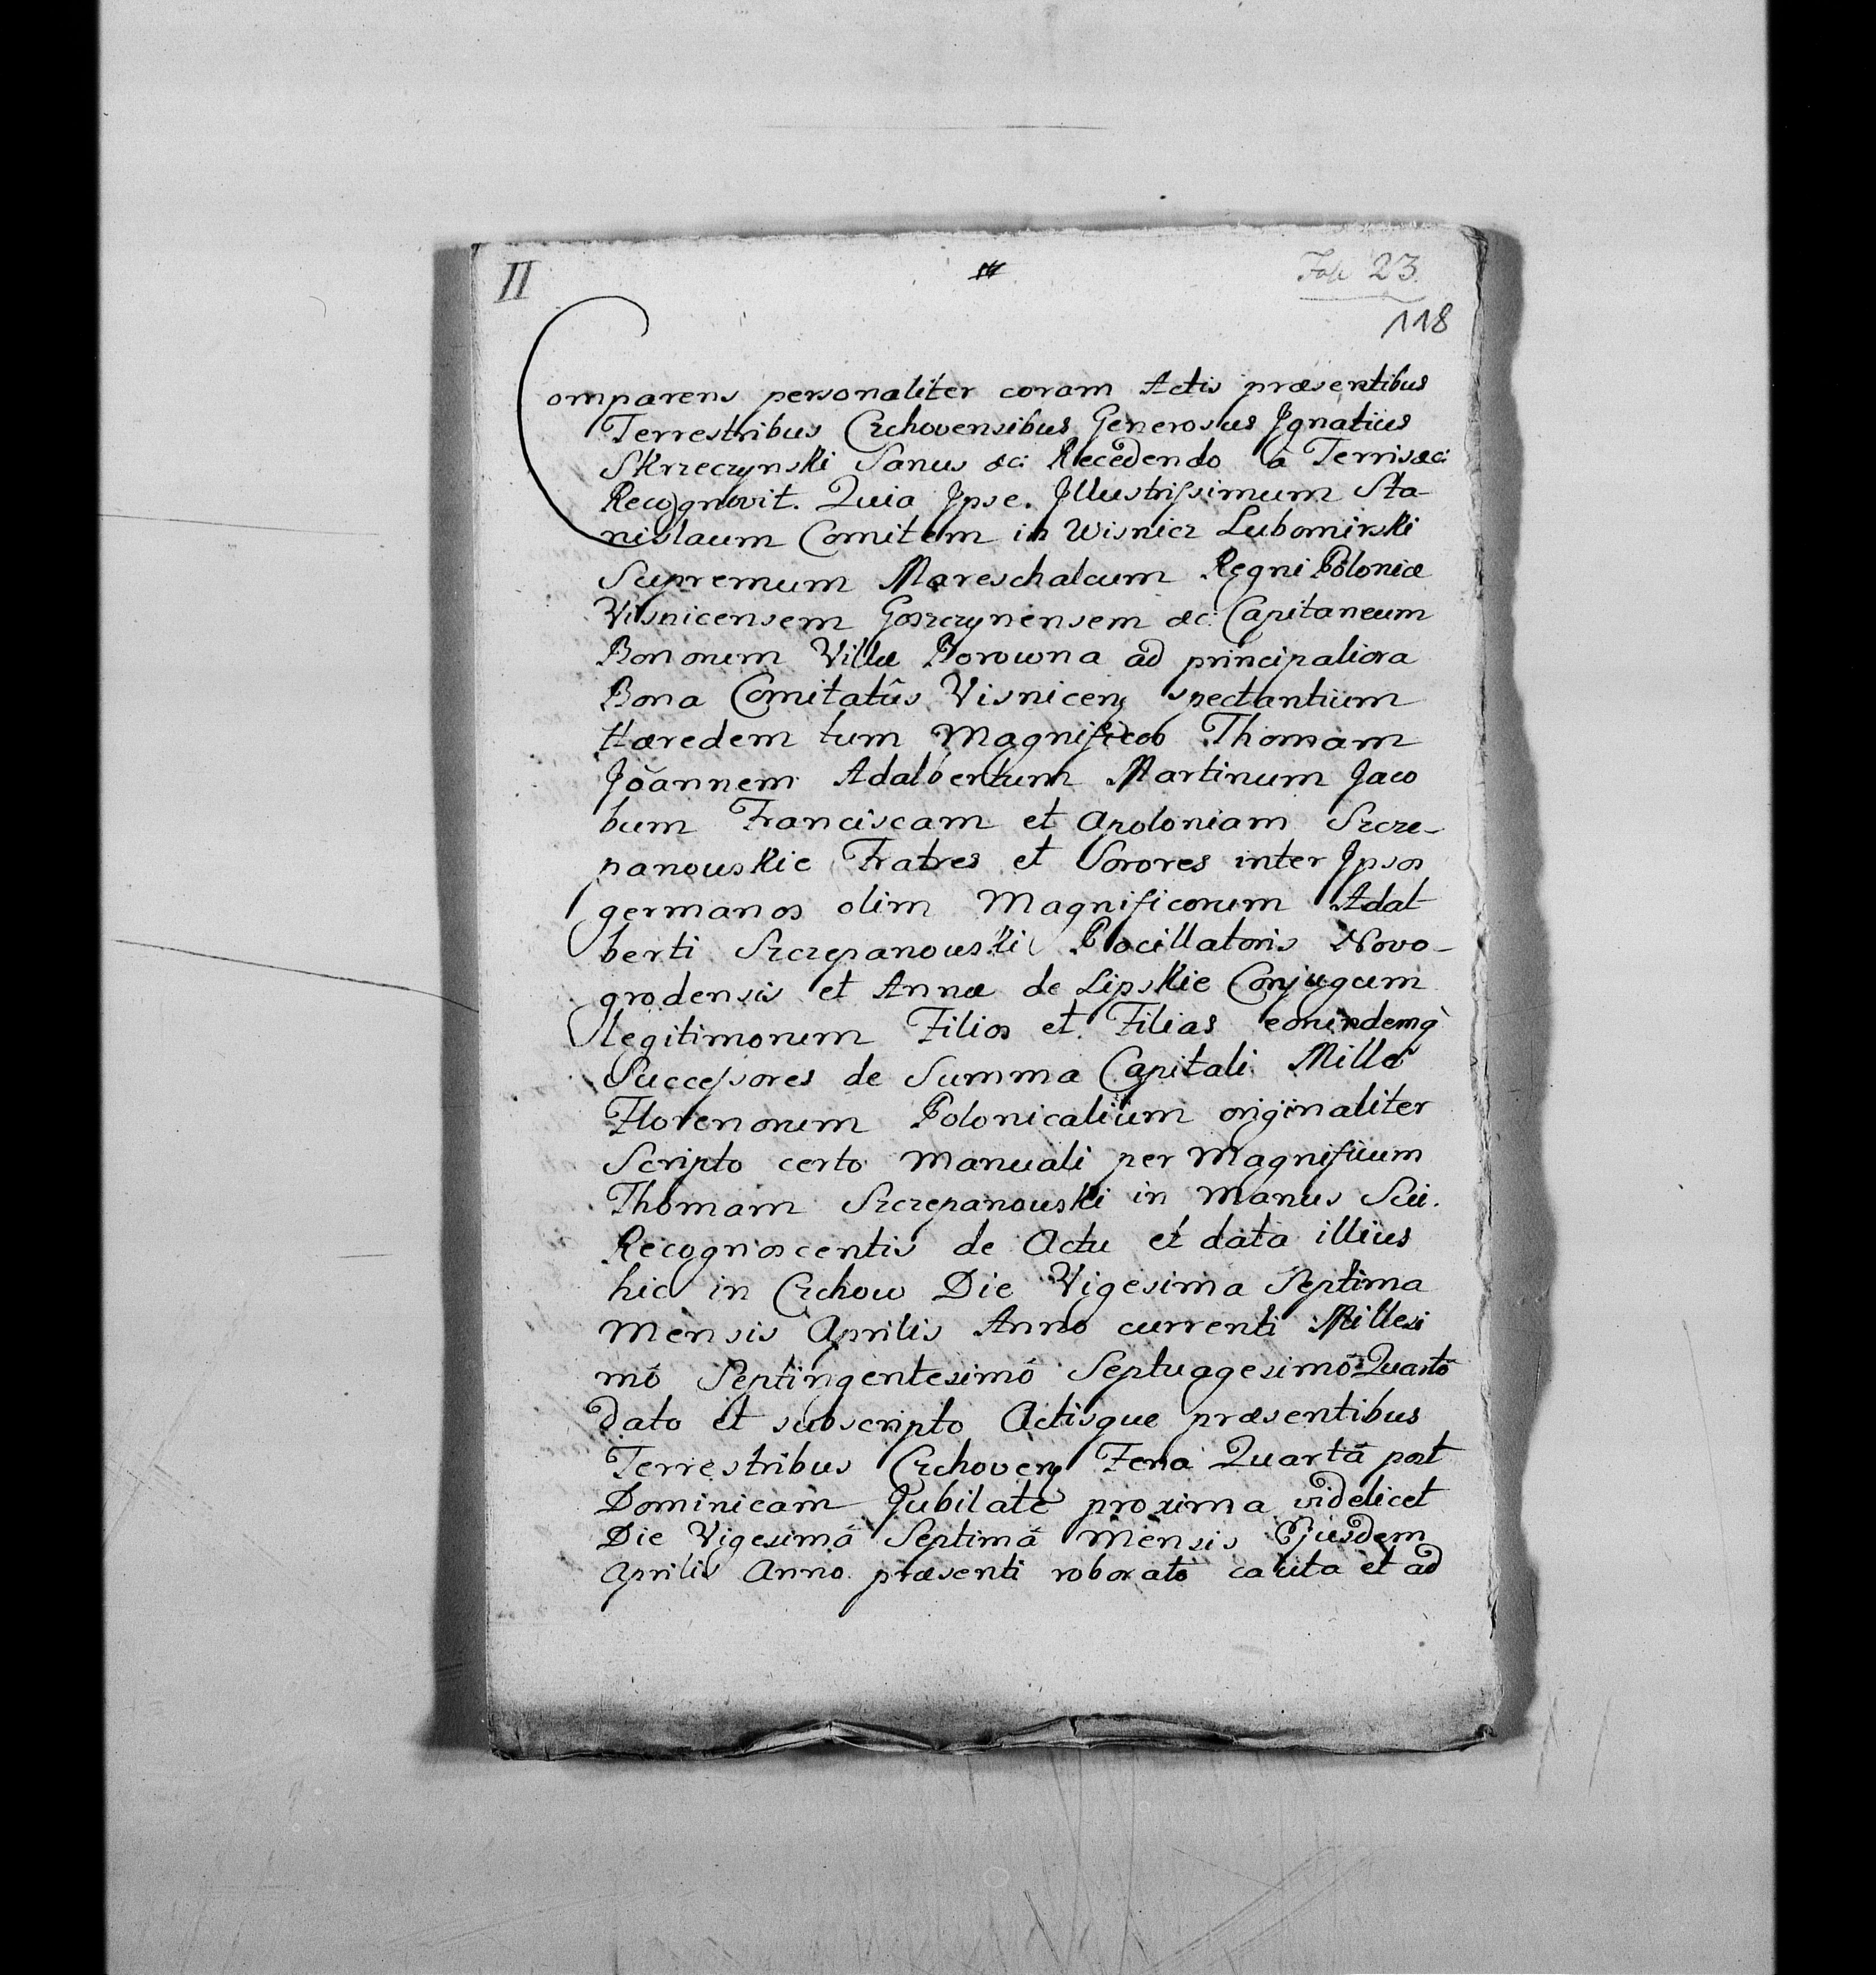 II
Fol. 23.
118
Comparens personaliter coram Actis præsentibus
Terrestribus Czchoviensibus Generosus Ignatius
Skrzeczynski Sanus &c: Recedendo à Terris &c:
Recognovit. Quia Ipse. Illustrissimum Sta-
nislaum Comitem in Wisnicz Lubomirski
Supremum Mareschalcum Regni Poloniæ
Visnicensem Goszczynensem &c: Capitaneum
Bonorum Villæ Borowna ad principaliora
Bona Comitatûs Visnicen spectantium
Hæredem tum Magnificos Thomam
Joannem Adalbertum Martinum Jaco
bum Franciscam et Apoloniam Szcze-
panowskie Fratres et Sorores inter Ipsos
germanos olim Magnificorum Adal
berti Szczepanowski Pocillatoris Novo-
grodensis et Annæ de Lipskie Conjugum
legitimorum Filios et Filias eorundemq̀
Successores de Summa Capitali Mille
Florenorum Polonicalium originaliter
Scripto certo Manuali per Magnificum
Thomam Szczepanowski in Manus Sui.
Recognoscentis de Actu et data illius
hic in Czchow Die Vigesima Septima
Mensis Aprilis Anno currenti Millesi
mó Septingentesimó Septuagesimó Quartó
dato et subscripto Actisque præsentibus
Terrestribus Czchoven Feria Quartâ post
Dominicam Jubilate proxima videlicet
Die Vigesimâ Septimâ Mensis Ejusdem
Aprilis Anno præsenti roborato cauta et ad